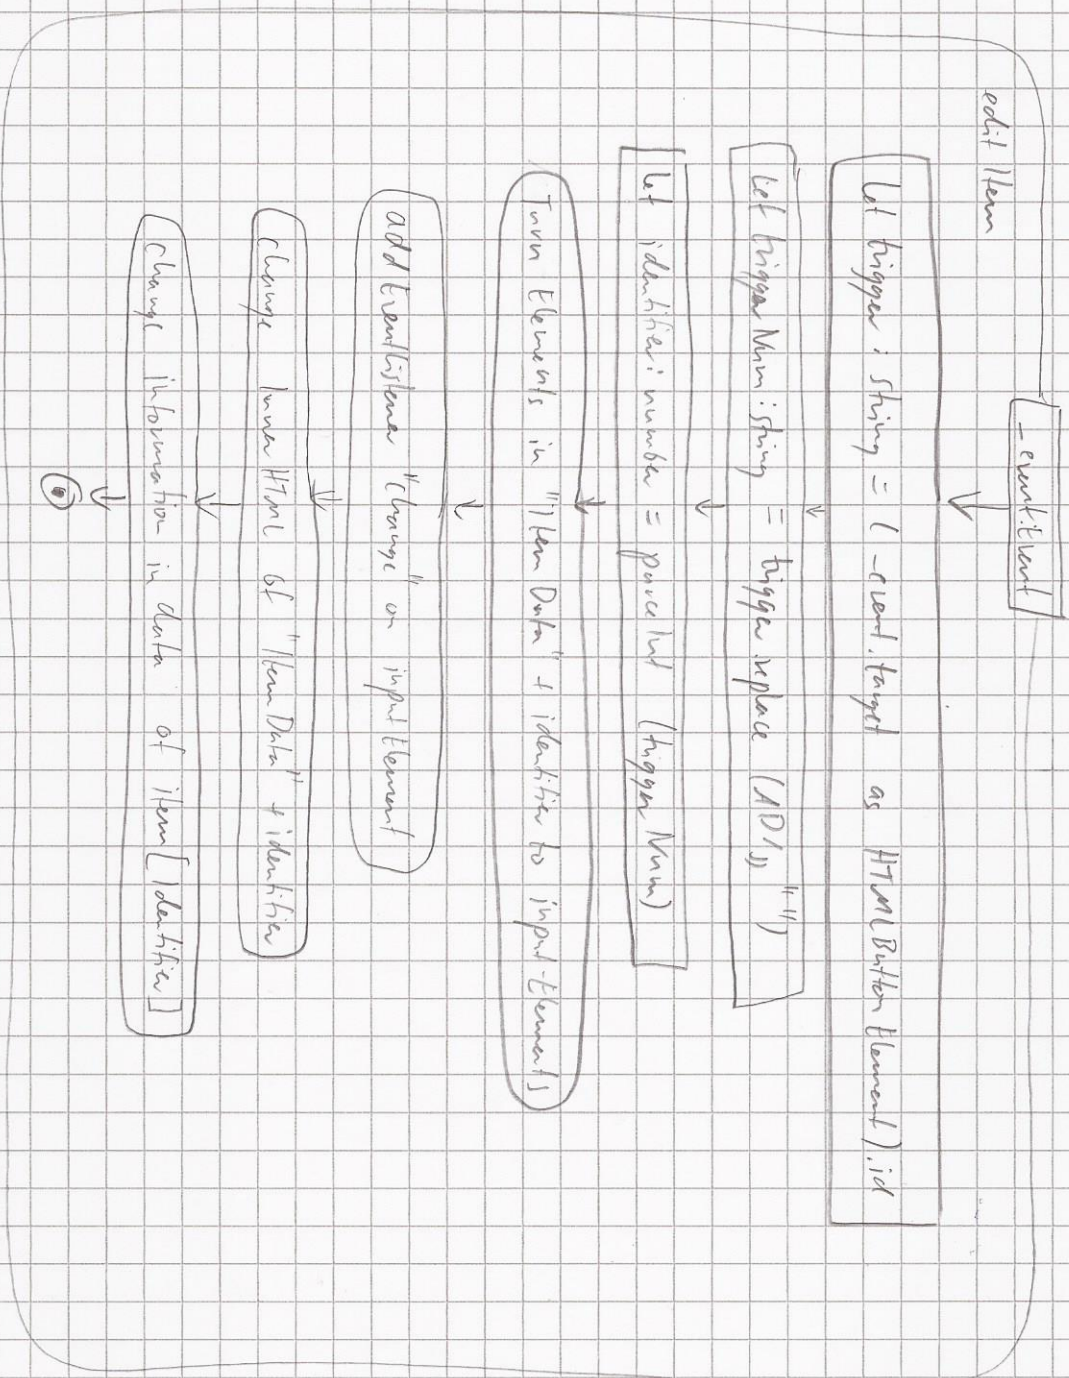 _event:Event
edit Item
let trigger : string = ( _event.target as HTMLButtonElement).id
let trigger Num : string = trigger.replace (/\D/g, "")
let identifier: number = parseInt (trigger Num)
Turn Elements in "Item Data" + identifier to input-Elements
addEventListener "change" on inputElement
Change innerHTML of "ItemData" + identifier
Change information in data of item[Identifier]